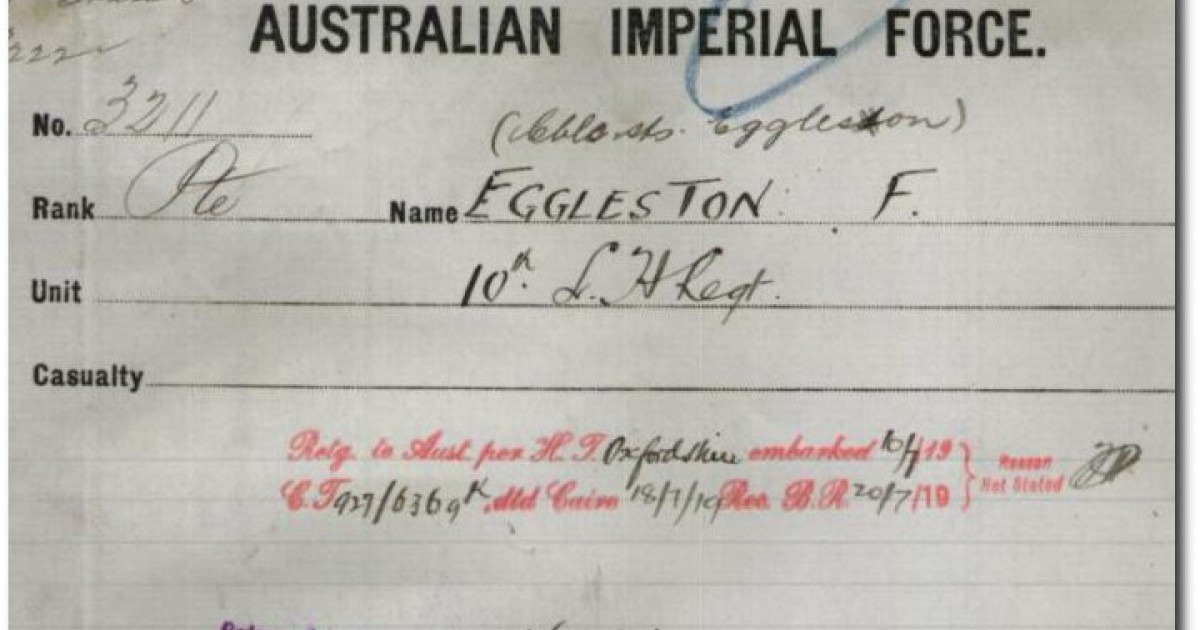 222
AUSTRALIAN IMPERIAL FORCE.
No. 3211
Eggleston)
Rank Pte Name EGGLESTON F.
Unit 10th L. H Regt.
Casualty
Retg. to Aust per H. T. Oxfordshire embarked 10/7/19
C. T 927/6369 dtd Cairo 18/7/19 Rec. B. R. 20/7/19
Reason
Not Stated